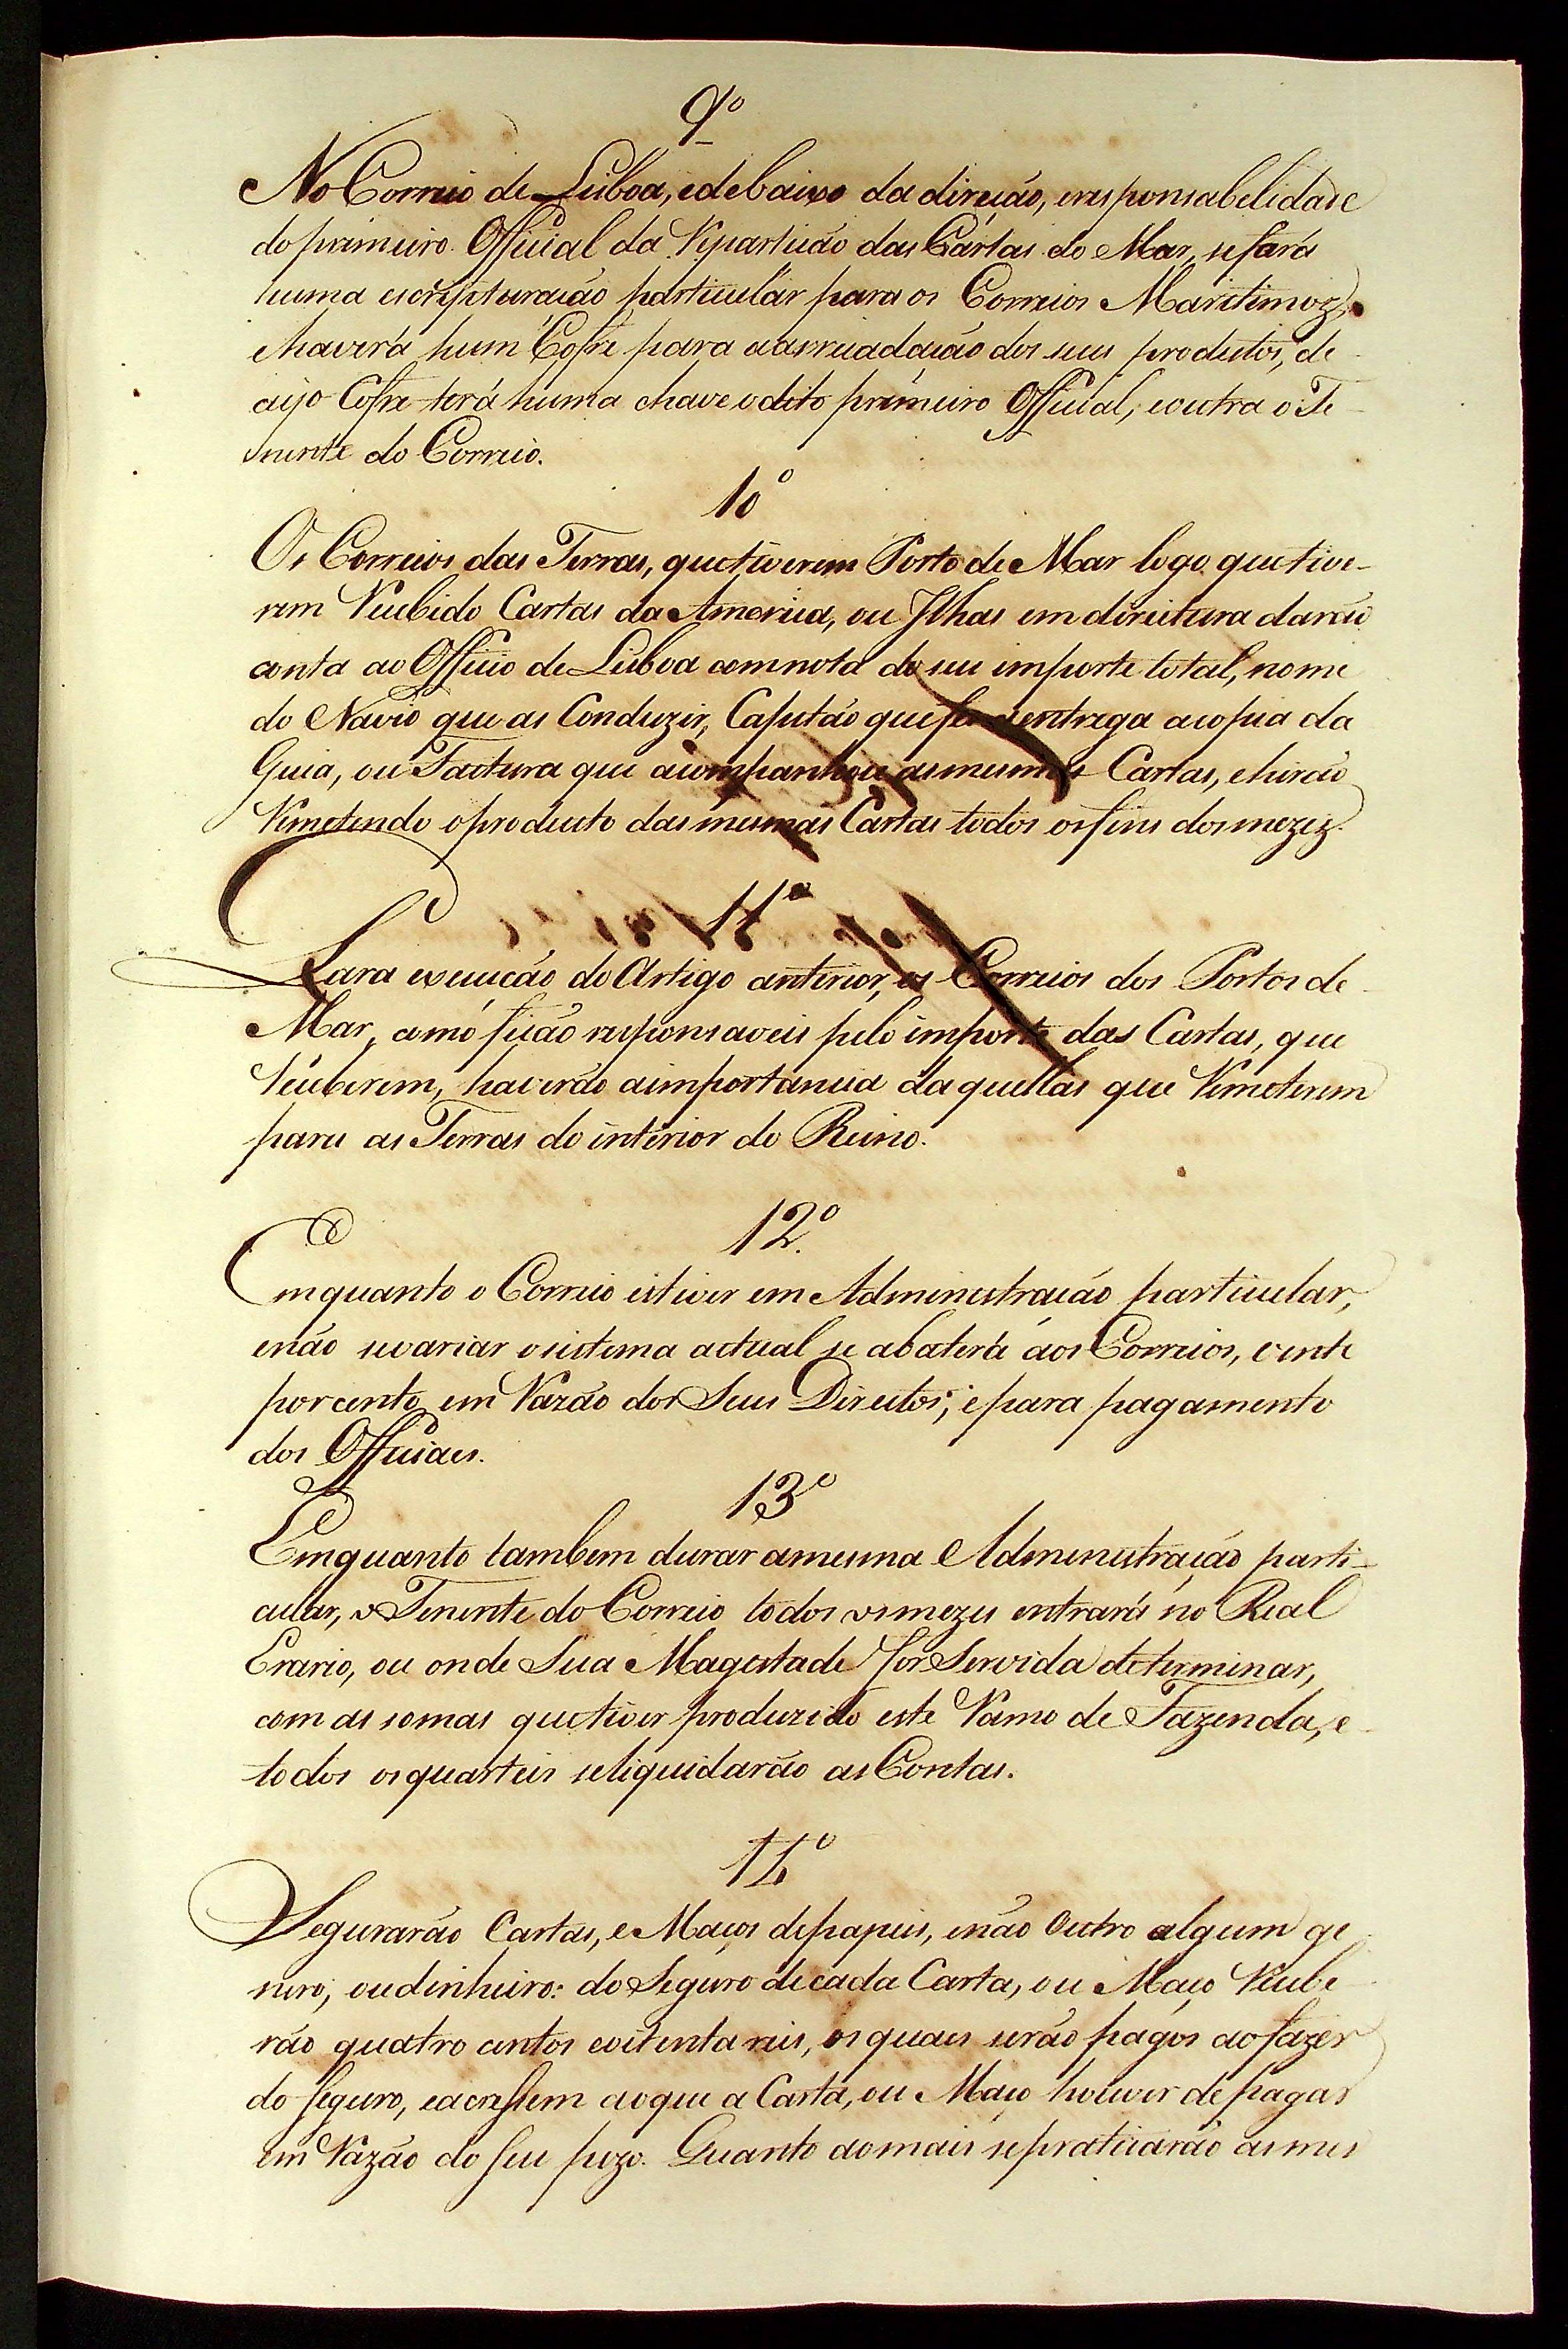 9º
No Correio de Lisboa, e debaixo da direcão, e responsabelidade
do primeiro Official da Repartição das Cartas do Mar, se fará
huma escripturação particular para os Correios Maritimoz,
e haverá hum Cofre para a arrecadação dos seus produtos, de
cujo Cofre terá huma chave o dito primeiro Official, e outra o Te-
nente do Correio.
10º
Os Correios das Terras, que tiverem Porto de Mar logo que tive-
rem Recebido Cartas da America, ou Ilhas em direitura darão
conta ao Officio de Lisboa com nota do seu importe total, nome
do Navio que as Conduzir, Capitão que entrega a copia da
Guia, ou Factura que acompanhou as mesmas Cartas, e hirão
Remetendo o producto das mesmas Cartas todos os fins dos mezez.
11º
Para execução do Artigo anterior, os Correios dos Portos de
Mar, como ficão responsaveis pelo importe das Cartas, que
Receberem, haverão a importancia daquellas que Remeterem
para as Terras do interior do Reino.
12º
Emquanto o Correio estiver em Administração particular,
e não se variar o sistema actual se abaterá aos Correios, vinte
por cento em Razão dos Seus Direitos, e para pagamento
dos Officiaes.
13º
Emquanto tambem durar a mesma Administração parti-
cular, o Tenente do Correio todos os mezes entrará no Real
Erario, ou onde Sua Magestade for Servida determinar,
com as somas que tiver produzido este Ramo de Fazenda, e
todos os quarteis se liquidarão as Contas.
14º
Segurarão Cartas, e Maços de papeis, e não outro algum ge-
nero, ou dinheiro: do Seguro de cada Carta, ou Maço Recebe-
rão quatro centos e oitenta reis, os quaes serão pagos ao fazer
do seguro, e acressem ao que a Carta, ou Maço houver de pagar
em Razão do seu pezo. Quanto ao mais se praticarão as mes